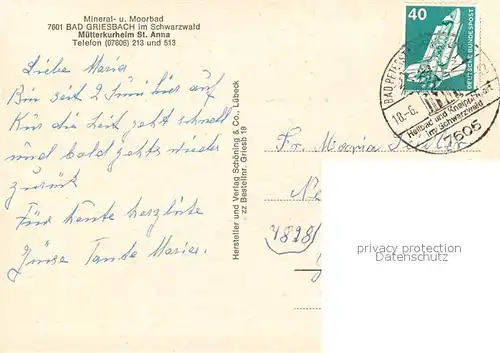 Mineral- u. Moorbad
7601 BAD GRIESBACH im Schwarzwald
Mütterkurheim St. Anna
Telefon (07606) 213 und 513
Liebe Maria
Bin seit 2 Juni hier auf
Kur die Zeit geht schnell
und bald gehts wieder
zurück
Für heute herzliche
Grüsse Tante Maria.
Hersteller und Verlag Schöning & Co., Lübeck
zz Bestellnr. Griesb 19
40
DEUTSCHE BUNDESPOST
BAD PETERST
18.-6.
Heilbad und Kneippkurort
im Schwarzwald
7605
Fr. Maria
4828
privacy protection
Datenschutz